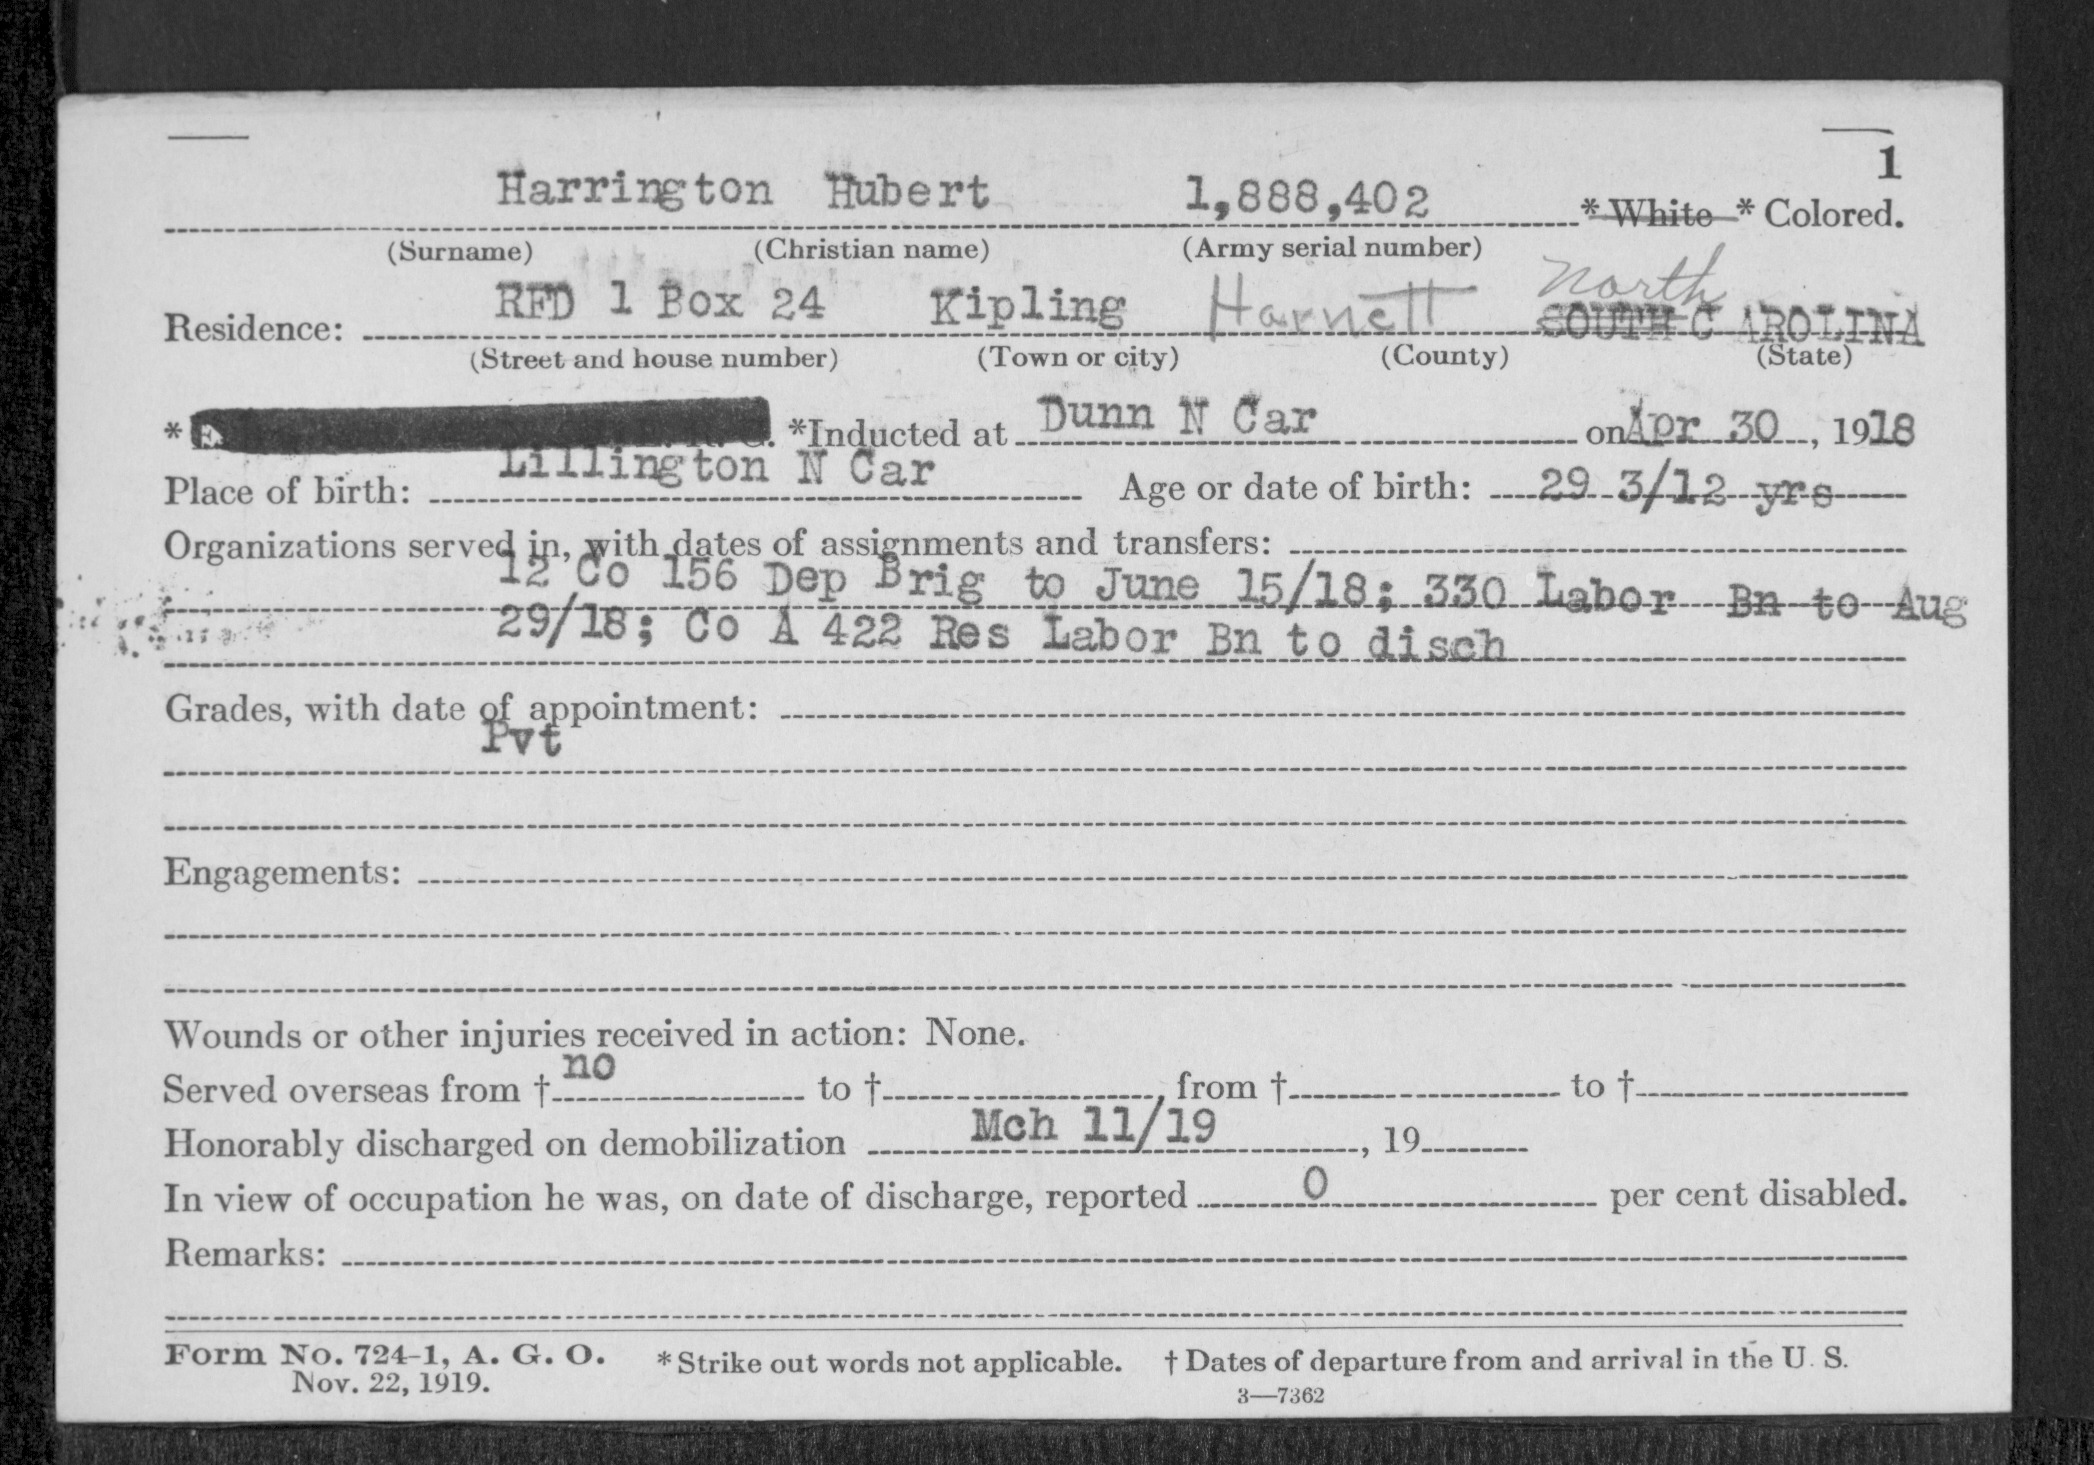 1
Harrington Hubert 1,888,402 * White * Colored.
(Surname) (Christian name) (Army serial number)
North
Residence: RFD 1 Box 24 Kipling Harnett SOUTH CAROLINA
(Street and house number) (Town or city) (County) (State)
* *Inducted at Dunn N Car on Apr 30, 1918
Place of birth: Lillington N Car Age or date of birth: 29 3/12 yrs
Organizations served in, with dates of assignments and transfers:
12 Co 156 Dep Brig to June 15/18; 330 Labor Bn to Aug
29/18; Co A 422 Res Labor Bn to disch
Grades, with date of appointment:
Pvt
Engagements:
Wounds or other injuries received in action: None.
Served overseas from † no to †, from † to †
Honorably discharged on demobilization Mch 11/19, 19
In view of occupation he was, on date of discharge, reported 0 per cent disabled.
Remarks:
Form No. 724-1, A. G. O. * Strike out words not applicable. † Dates of departure from and arrival in the U. S.
Nov. 22, 1919. 3—7362